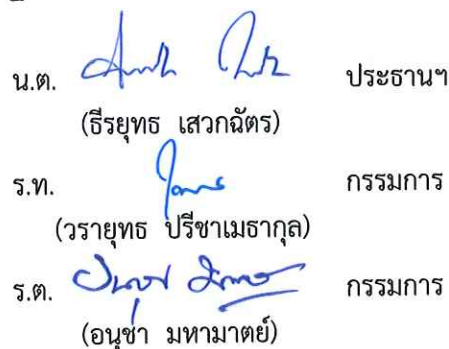 น.ต. ประธานฯ
(ธีรยุทธ เสวกฉัตร)
ร.ท. กรรมการ
(วรายุทธ ปรีชาเมธากุล)
ร.ต. กรรมการ
(อนุชา มหามาตย์)